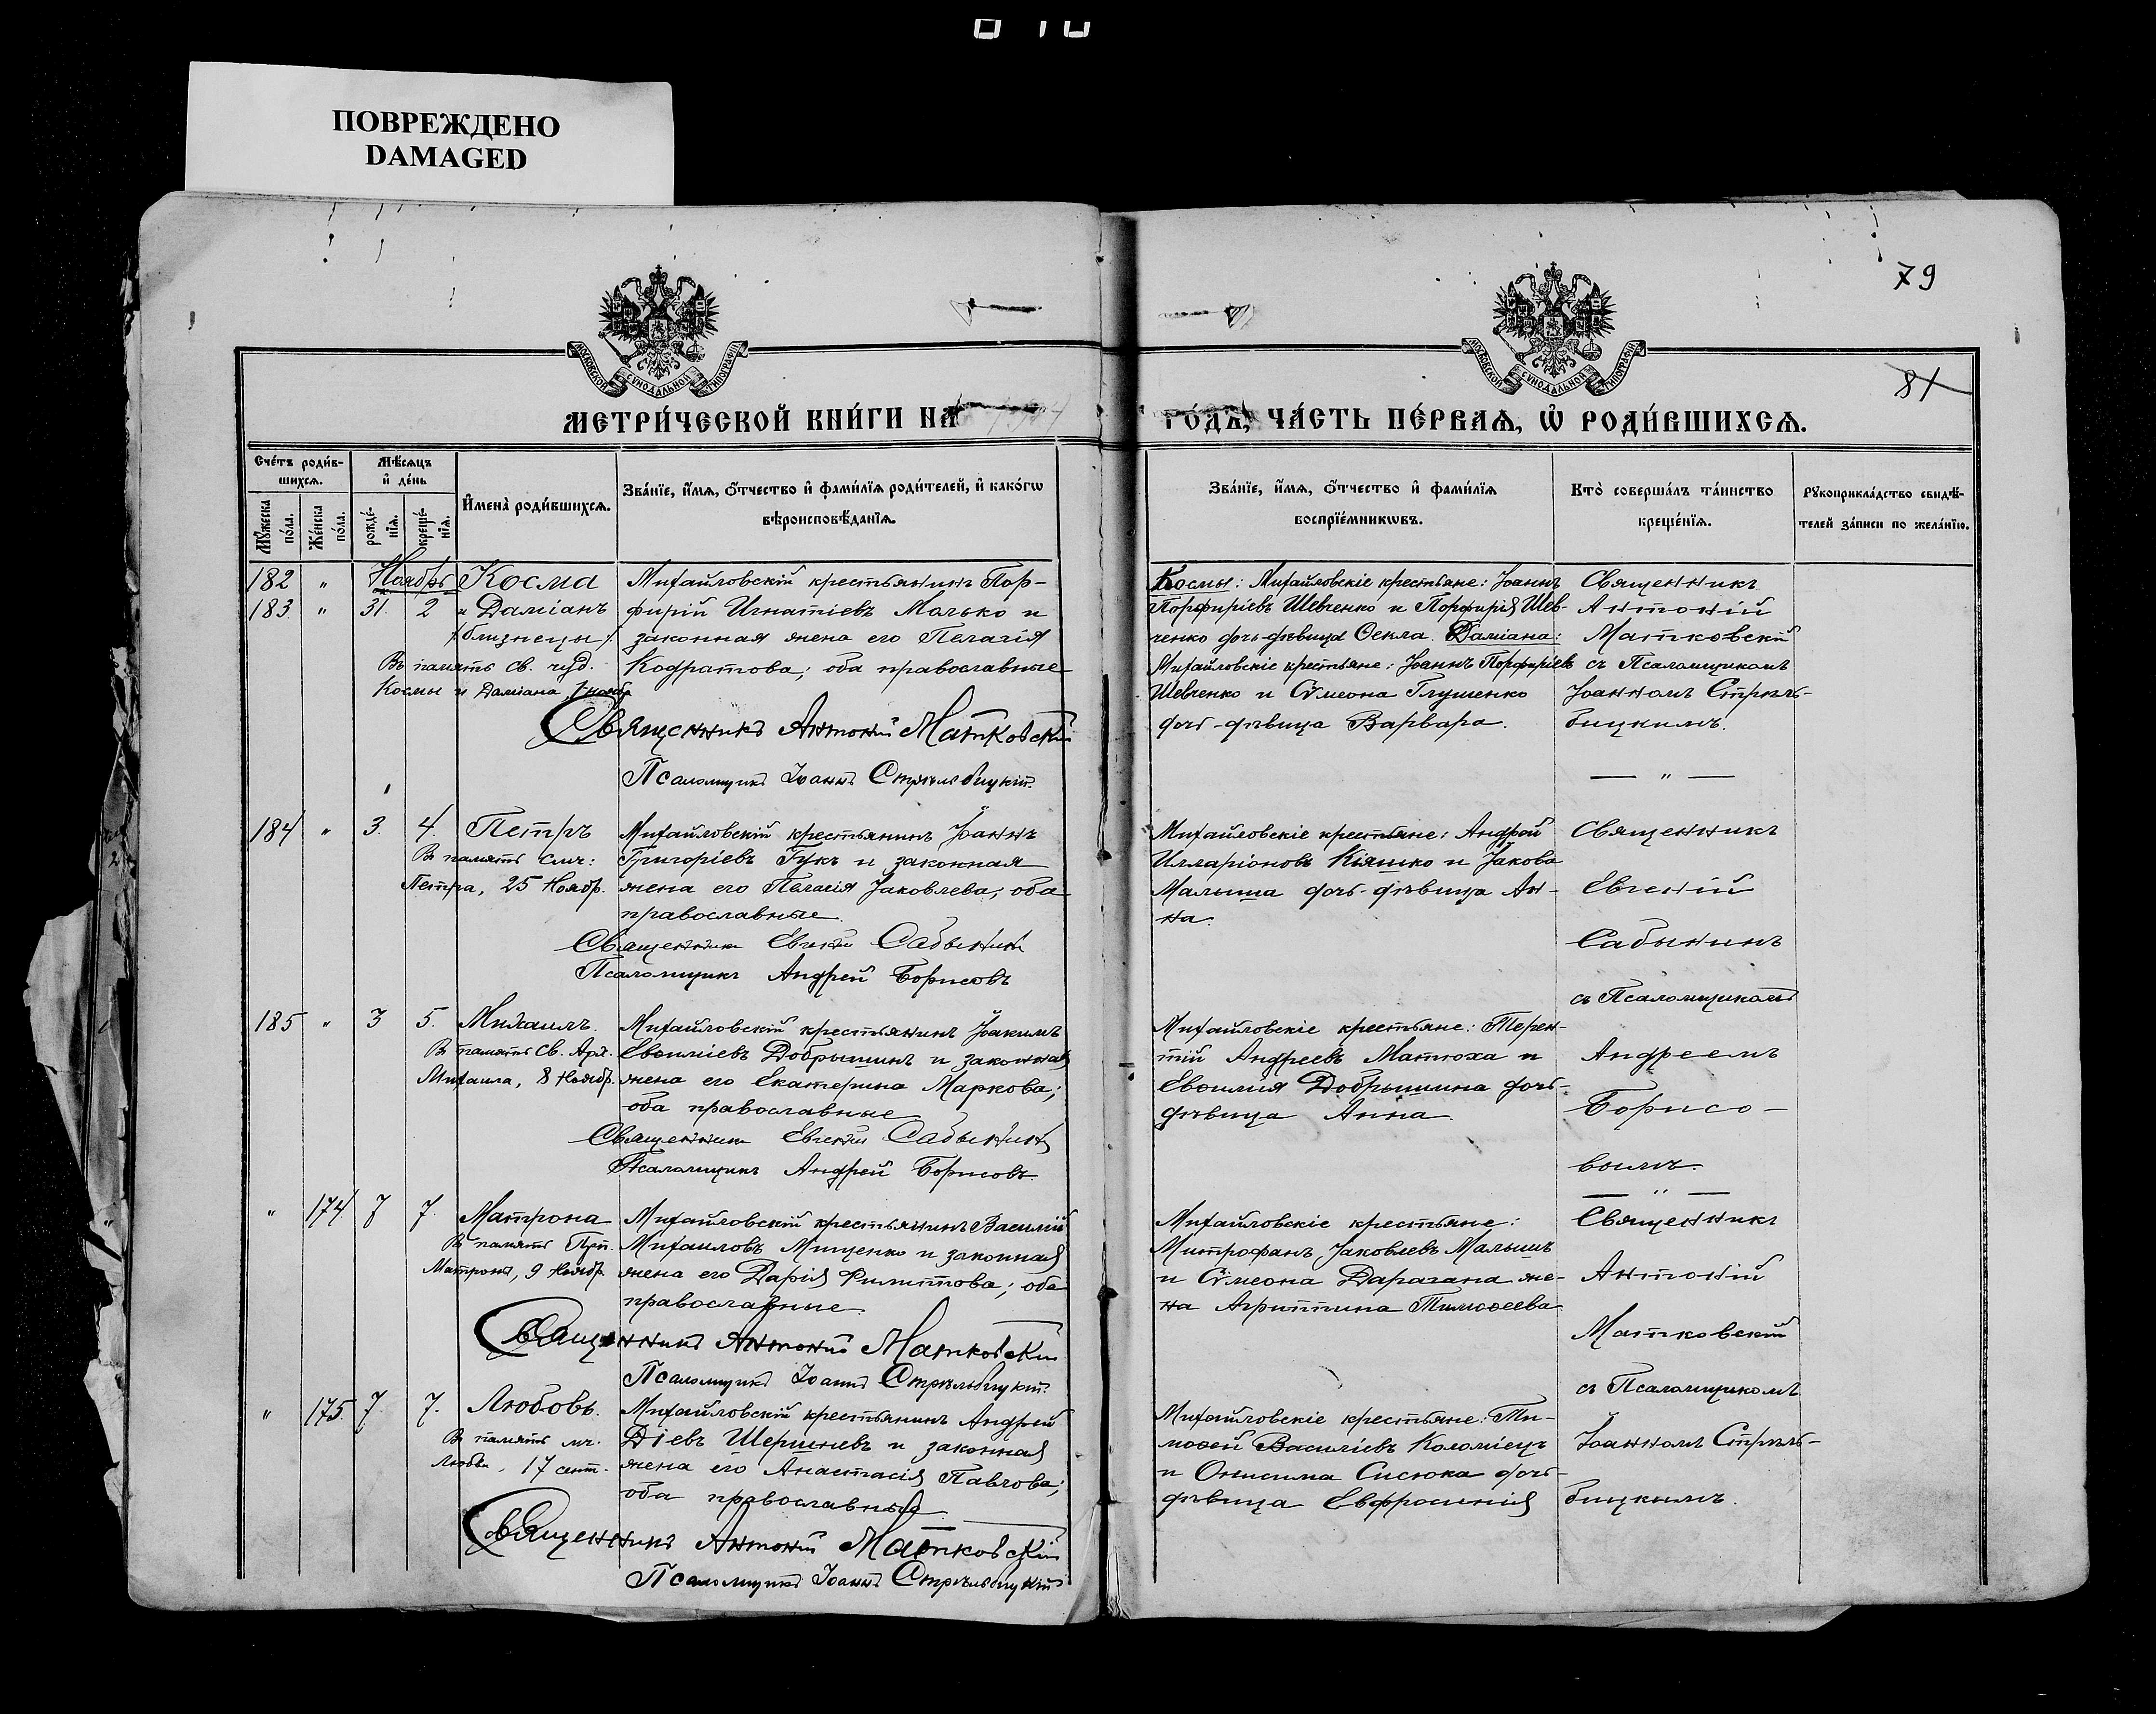 ПОВРЕЖДЕНО
DAMAGED
79
81
МОСКОВСКОЙ СѴНОДАЛЬНОЙ ТИПОГРАФІИ
МОСКОВСКОЙ СѴНОДАЛЬНОЙ ТИПОГРАФІИ
МЕТРИ́ЧЕСКОЙ КНИ́ГИ НА
ГО́ДЪ, ЧА́СТЬ ПЕ́РВАѦ, Ѡ҆ РОДИ́ВШИХСѦ.
Сче́тъ роди́в-
шихсѧ.
Мꙋ́жеска по́ла.
Же́нска по́ла.
Мѣ́сѧцъ
и҆ де́нь
рожде́-нїѧ.
креще́-нїѧ.
И҆мена̀ роди́вшихсѧ.
Зва́нїе, и҆́мѧ, ѻ҆́тчество и҆ фами́лїѧ роди́телей, и҆ како́гѡ
вѣроисповѣ́данїѧ.
Зва́нїе, и҆́мѧ, ѻ҆́тчество и҆ фами́лїѧ
воспрїе́мникѡвъ.
Кто̀ соверша́лъ та́инство
креще́нїѧ.
Рꙋкоприкла́дство свидѣ́-
телей за́писи по жела́нїю.
182 " Ноябрь Косма
183. " 31. 2 и Даміанъ
/близнецы/.
Въ память св. чуд.
Космы и Даміана, 1 ноябр.
Михайловскій крестьянинъ Пор-
фирій Игнатіевъ Малько и
законная жена его Пелагія
Кодратова; оба православные
Священникъ Антоній Матковскій
Псаломщикъ Іоаннъ Стрѣльбицкій.
Космы: Михайловскіе крестьяне: Іоаннъ
Порфиріевъ Шевченко и Порфирія Шев-
ченко дочь-дѣвица Ѳекла. Даміана:
Михайловскіе крестьяне: Іоаннъ Порфиріевъ
Шевченко и Сѵмеона Глушенко
дочь-дѣвица Варвара.
Священникъ
Антоній
Матковскій
съ Псаломщикомъ
Іоанномъ Стрѣль-
бицкимъ.
— " —
184 " 3. 4. Петръ
В память смч:
Петра, 25 Ноябр.
Михайловскій крестьянинъ Іоаннъ
Григоріевъ Гукъ и законная
жена его Пелагія Іаковлева; оба
православные.
Священникъ Евгеній Сабынинъ
Псаломщикъ Андрей Борисовъ
Михайловскіе крестьяне: Андрей
Илларіоновъ Кіяшко и Іакова
Малыша дочь-дѣвица Ан-
на.
Священникъ
Евгеній
Сабынинъ
съ Псаломщикомъ
185 " 3 5. Михаилъ.
В память Св. Арх.
Михаила, 8 Ноябр.
Михайловскій крестьянинъ Іоакимъ
Евѳиміевъ Добрышинъ и законная
жена его Екатерина Маркова;
оба православные
Священникъ Евгеній Сабынинъ
Псаломщикъ Андрей Борисовъ.
Михайловскіе крестьяне: Терен-
тій Андреевъ Матюха и
Евѳимія Добрышина дочь-
дѣвица Анна.
Андреемъ
Борисо-
вымъ.
— " —
" 174. 7 7. Матрона
В память Прп.
Матроны, 9 Ноябр.
Михайловскій крестьянинъ Василій
Михаиловъ Мищенко и законная
жена его Дарія Филиппова; оба
православные.
Священникъ Антоній Матковскій
Псаломщикъ Іоаннъ Стрѣльбицкій.
Михайловскіе крестьяне:
Митрофанъ Іаковлевъ Малышъ
и Сѵмеона Дарагана же-
на Агриппина Тимоѳеева.
Священникъ
Антоній
Матковскій
съ Псаломщикомъ
" 175. 7 7. Любовь.
В память мч.
Любви, 17 сент.
Михайловскій крестьянинъ Андрей
Діевъ Шершневъ и законная
жена его Анастасія Павлова;
оба православные.
Священникъ Антоній Матковскій
Псаломщикъ Іоаннъ Стрѣльбицкій
Михайловскіе крестьяне: Ти-
моѳей Василіевъ Коломіецъ
и Онисима Сисюка дочь-
дѣвица Евфросинія
Іоанномъ Стрѣль-
бицкимъ.